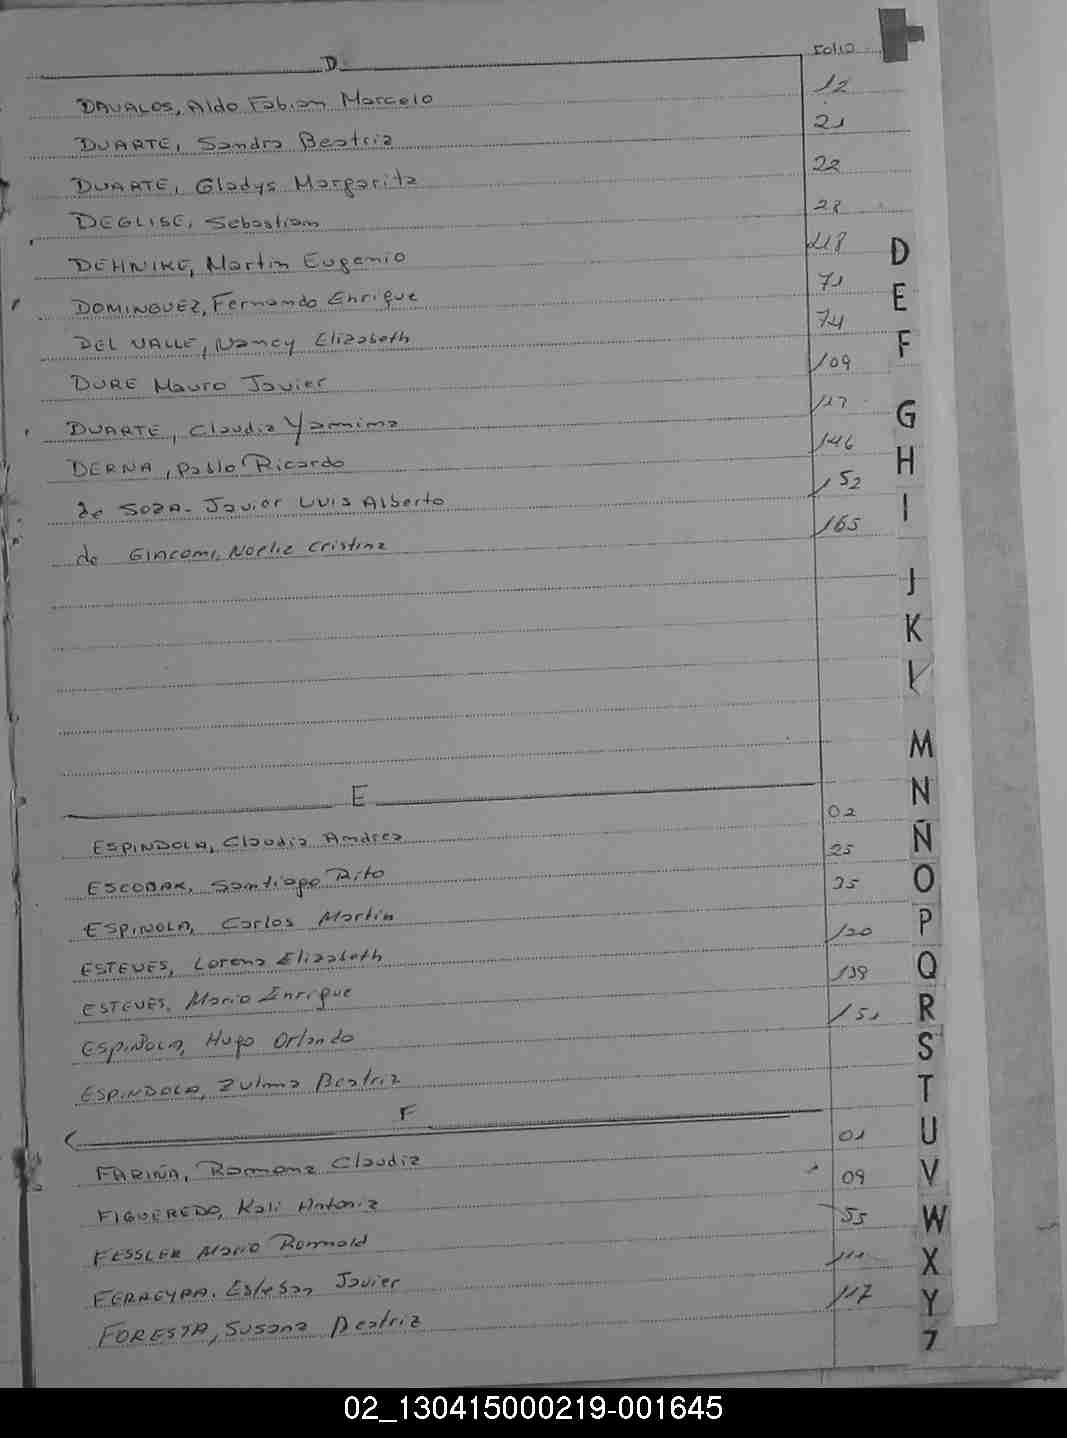 D folio
DAVALOS, Aldo Fabian Marcelo 12
DUARTE, Sandra Beatriz 21
DUARTE, Gladys Margarita 22
DEGLISE, Sebastian 28
DEHNIKE, Martin Eugenio
DOMINGUEZ, Fernando Enrique 71
DEL VALLE, Nancy Elizabeth 74
DURE Mauro Javier 109
DUARTE, Claudia Yamnima
DERNA, Pablo Ricardo 146
de SOZA- Javier LUIS Alberto 152
de GIACOMI, Noelia Cristina 165
E
ESPINDOLA, Claudia Andrea 02
ESCOBAR, Santiago Rito 25
ESPINOLA, Carlos Martin
ESTEVES, Lorena Elizabeth
ESTEVES, Mario Enrique 139
ESPINDOLA, Hugo Orlando 151
ESPINDOLA, Zulma Beatriz
F
FARIÑA, Ramona Claudia 01
FIGUEREDO, Kali Antonia 09
FESSLER Mario Romnald 55
FERREYRA. Esteban Javier 111
FORESTA, Susana Beatriz 117
D
E
F
G
H
I
J
K
L
M
N
Ñ
O
P
Q
R
S
T
U
V
W
X
Y
Z
02_130415000219-001645